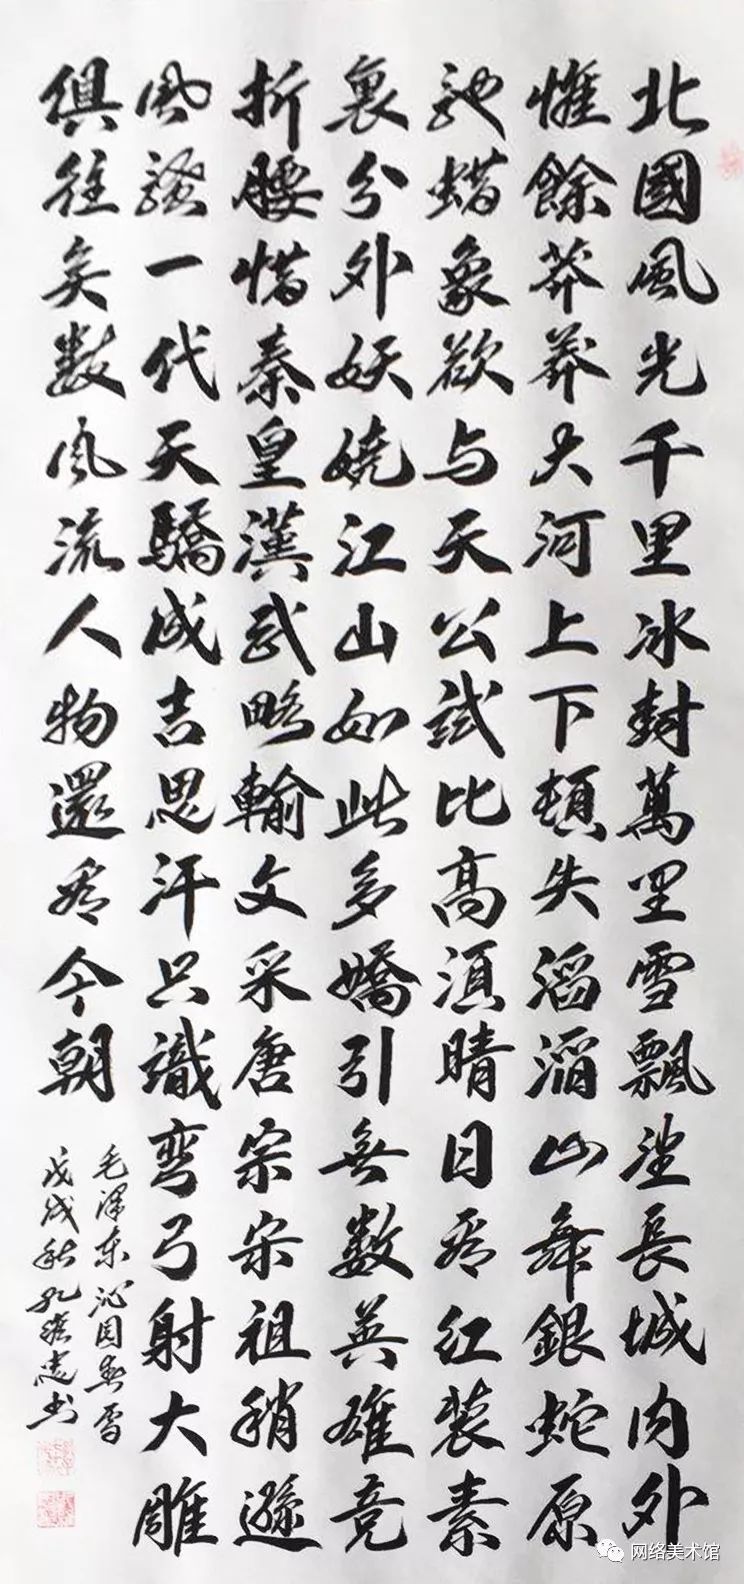 北國風光千里冰封萬里雪飄望長城内外
惟餘莽莽大河上下頓失滔滔山舞銀蛇原
馳蜡象欲与天公試比高須晴日看红装素
裹分外妖娆江山如此多嬌引無數英雄竞
折腰惜秦皇漢武略輸文采唐宗宋祖稍遜
風騷一代天驕成吉思汗只識弯弓射大雕
俱往矣数風流人物還看今朝
毛澤東沁园春雪
戊戌秋孔书
网络美术馆